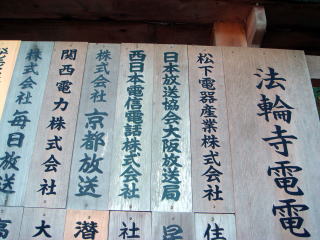 法輪寺電電
松下電器産業株式会社
日本放送協会大阪放送局
西日本電信電話株式会社
株式会社 京都放送
関西電力株式会社
株式会社 毎日放送
住
社
潜
大
高